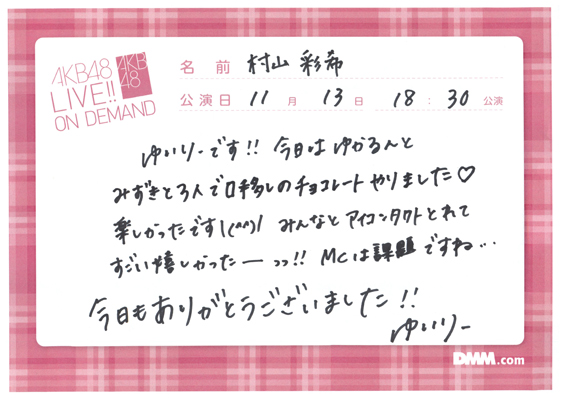 AKB48
LIVE!!
ON DEMAND
AKB
48
名前 村山 彩希
公演日 11月 13日 18:30公演
ゆいりーです!! 今日はゆかるんと
みずきと3人で口移しのチョコレートやりました♡
楽しかったです\(^^)/ みんなとアイコンタクトとれて
すごい嬉しかったーっっ!! MCは課題ですね…
今日もありがとうございました!!
ゆいりー
DMM.com